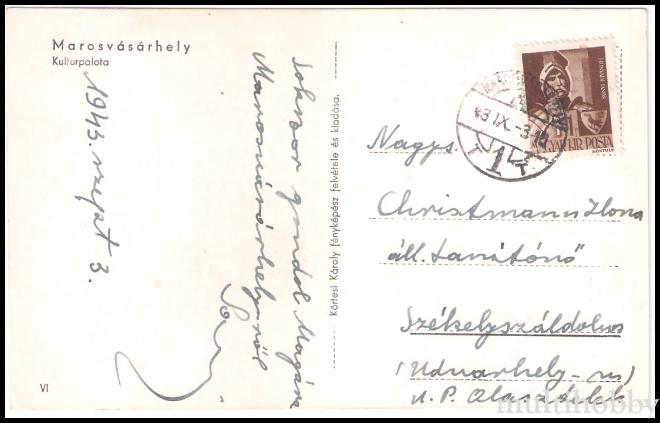 Marosvásárhely
Kulturpalota
1943. szept 3.
Sokszor gondol Magára
Marosvásárhelyről
Körtesi Károly fényképész felvétele és kiadása.
VI
HUNYADI JÁNOS
MAGYAR KIR. POSTA
43 IX. -3.
1
T.
Nagys.
Christmann Ilona
áll. tanítónő
Székelyszáldobos
(Udvarhely-m)
u. P. Olasztelek
multihobby